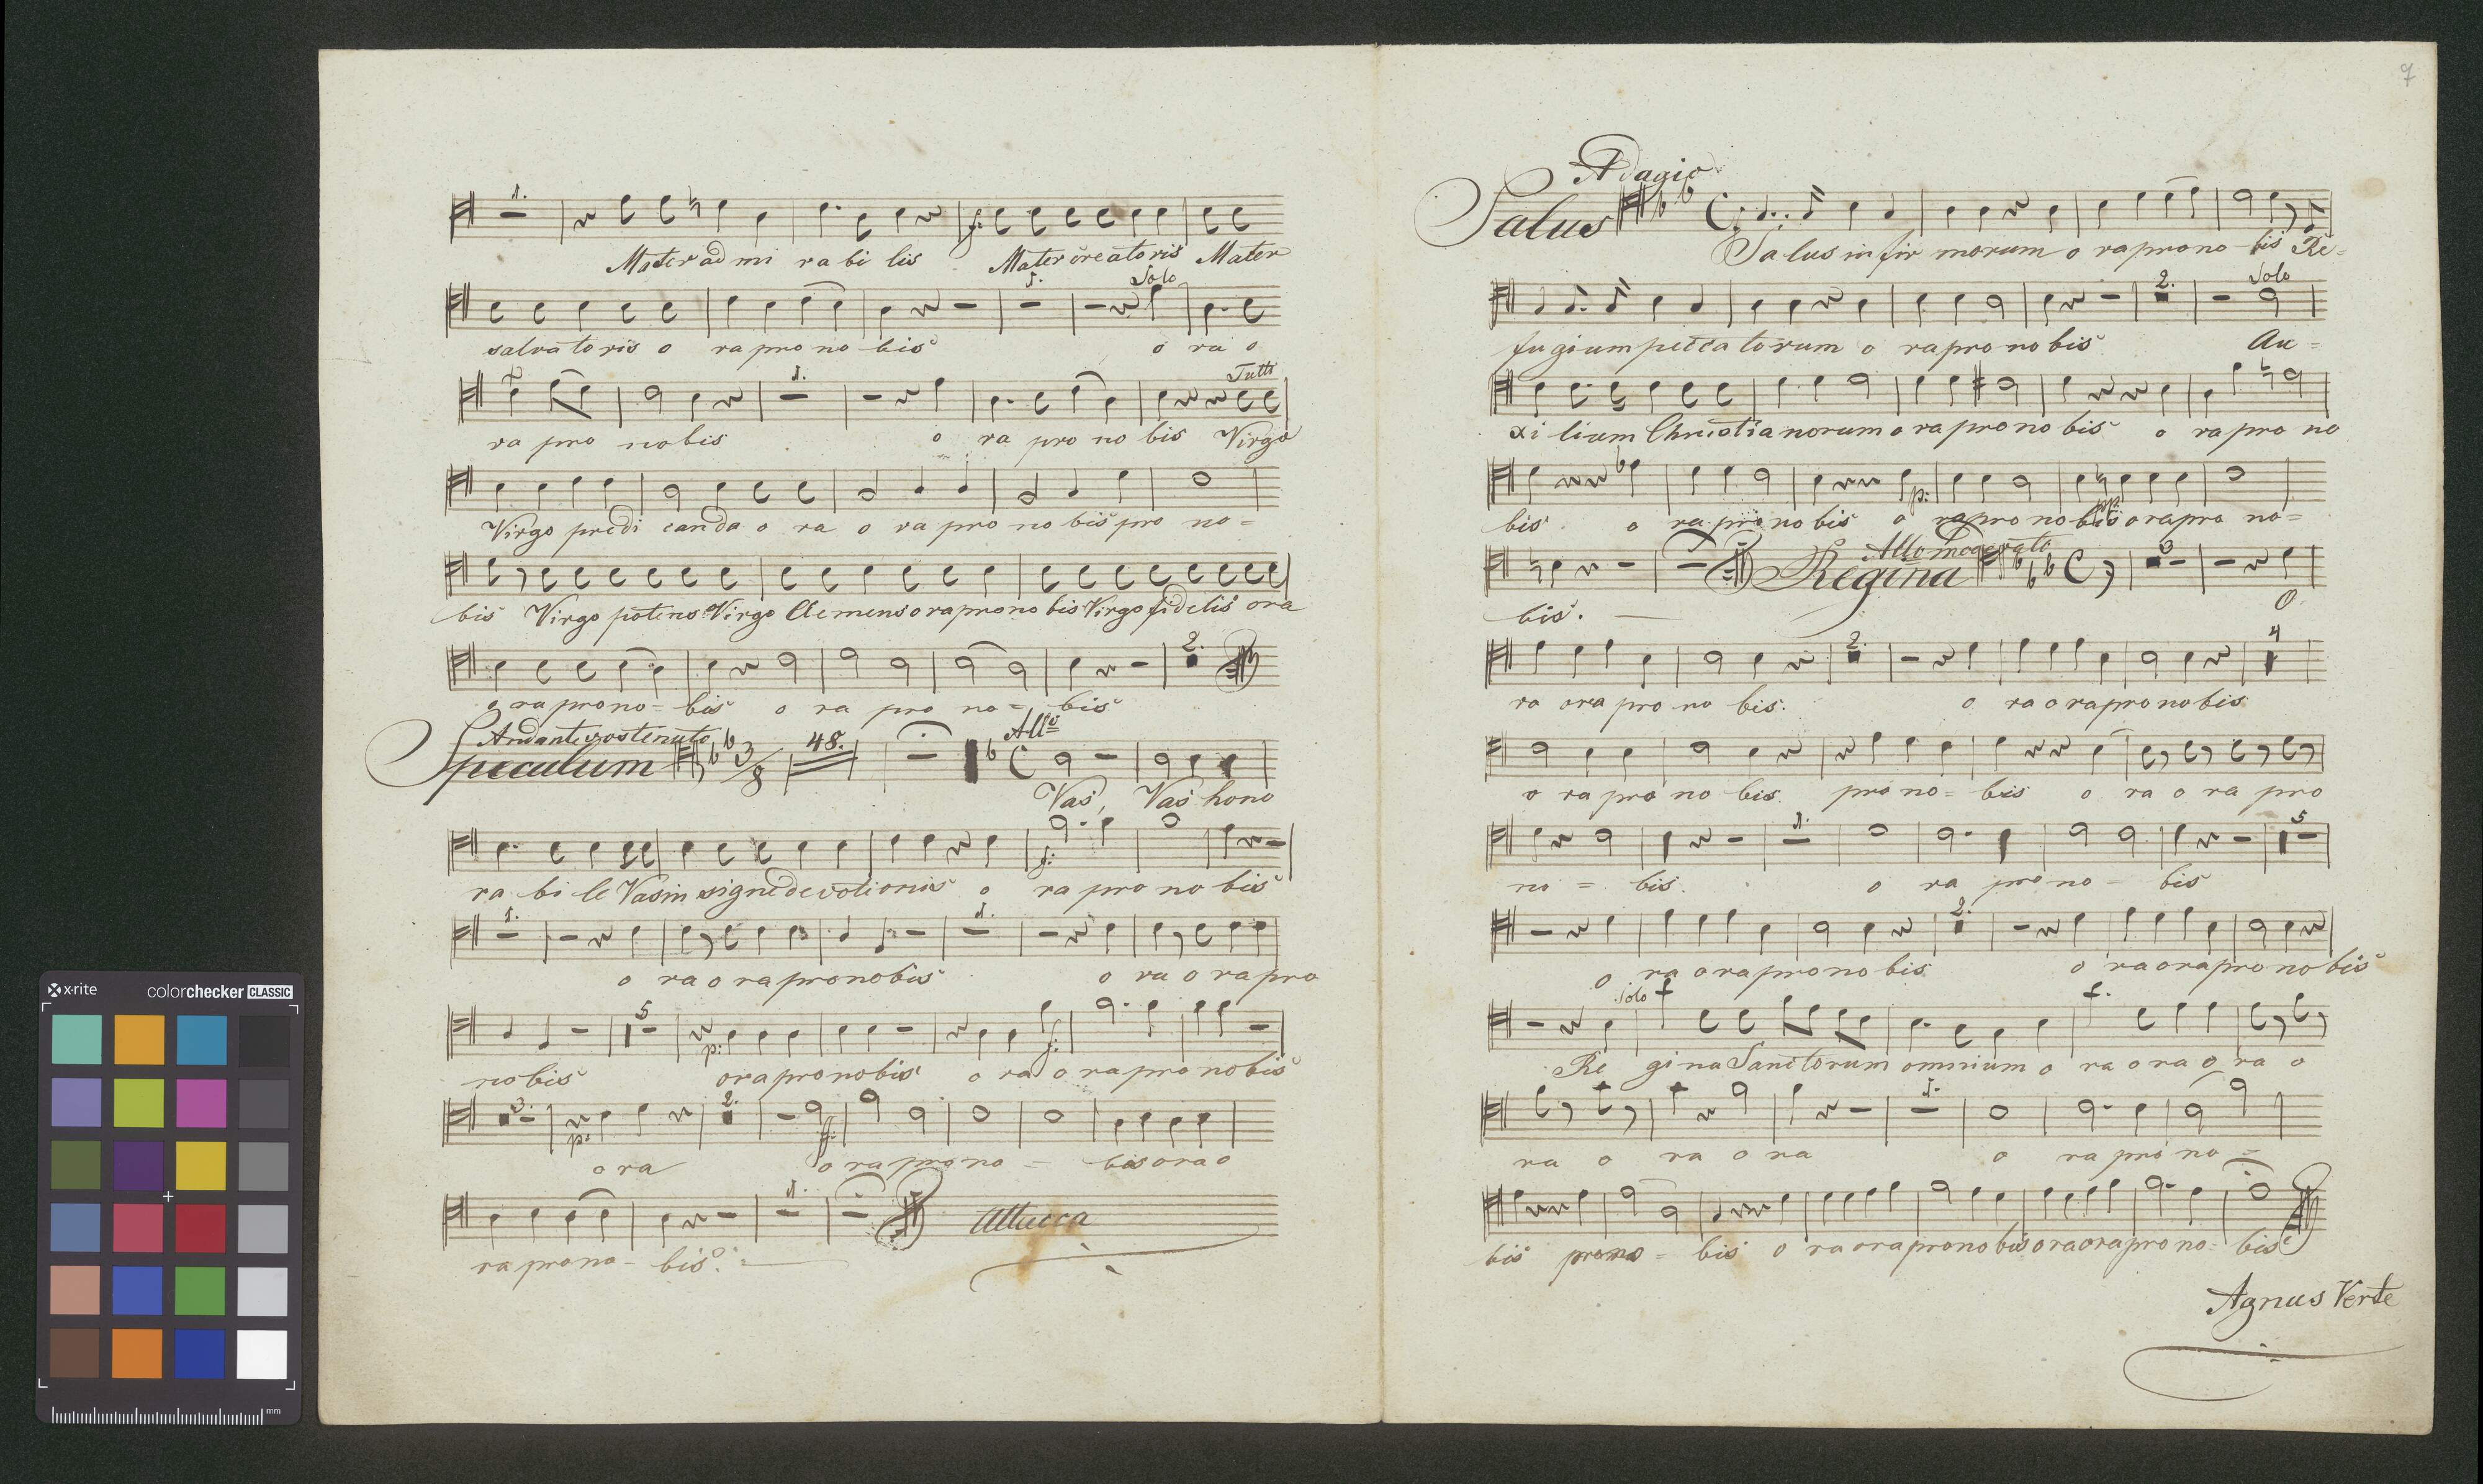 1.
Mater ad mi ra bi lis f: Mater creatoris Mater
1. Solo
salvatoris o ra pro no bis o ra o
1. Tutti
ra pro nobis o ra pro no bis Virgo
Virgo predi canda o ra o ra pro no bis pro no=
bis Virgo potens Virgo Clemens o ra pro no bis Virgo fidelis ora
2.
o ra pro no= bis o ra pro no= bis
Andante sostenuto Allo
Speculum 3/8 48.
Vas, Vas hono
f:
ra bi le Vas in signe devotionis o ra pro no bis
1. 1.
o ra o ra pro no bis o ra o ra pro
5 p: f:
no bis ora pro nobis o ra o ra pro no bis
3. p: 2. ff:
o ra o ra pro no = bis ora o
1.
Attacca
ra pro no= bis.
7
Adagio
Salus
Salus in fir morum o ra pro no- bis Re=
2. Solo
fu gium peccatorum o ra pro no bis Au=
xi lium Christianorum o ra pro no bis o ra pro no
p: pp:
bis o ra pro no bis o ra pro no bis o ra pro no=
Allo moderato
Regina 3
bis. O
2. 4
ra ora pro no bis. o ra o ra pro no bis
o ra pro no bis. pro no= bis o ra o ra pro
1. 5
no = bis. o ra pro no= bis
2.
o ra o ra pro no bis o ra o ra pro no bis
Solo
Re gina Sanctorum omnium o ra o ra o ra o
1.
ra o ra o ra o ra pro no=
bis pro no= bis o ra o ra pro no bis o ra o ra pro no= bis
Agnus Verte